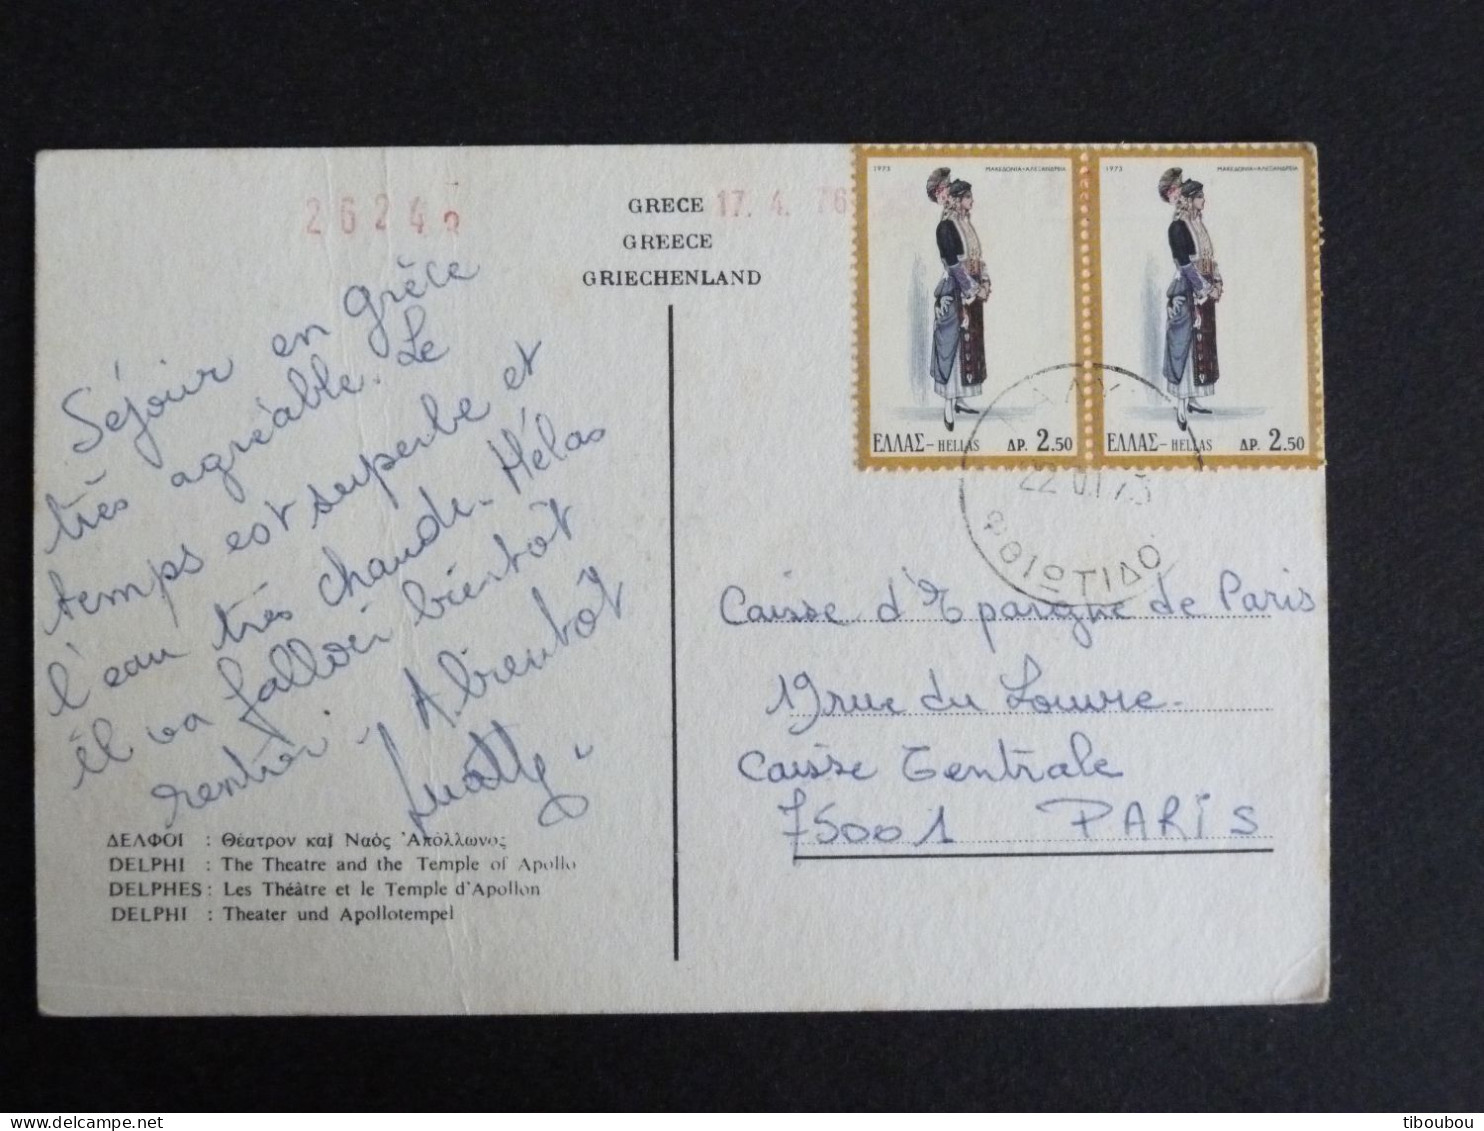 26243
GRECE
GREECE
GRIECHENLAND
17. 4. 76
Séjour en grèce
très agréable. Le
temps est superbe et
l'eau très chaude. Hélas
il va falloir bientôt
rentrer. A bientôt
ΔΕΛΦΟΙ : Θέατρον καί Ναός Ἀπόλλωνος
DELPHI : The Theatre and the Temple of Apollo
DELPHES : Les Théâtre et le Temple d'Apollon
DELPHI : Theater und Apollotempel
1973 ΜΑΚΕΔΟΝΙΑ-ΑΛΕΞΑΝΔΡΕΙΑ
ΕΛΛΑΣ-HELLAS ΔΡ. 2.50
1973 ΜΑΚΕΔΟΝΙΑ-ΑΛΕΞΑΝΔΡΕΙΑ
ΕΛΛΑΣ-HELLAS ΔΡ. 2.50
ΦΘΙΩΤΙΔΟ
Caisse d'Epargne de Paris
19 rue du Louvre.
Caisse Centrale
75001 PARIS
tiboubou